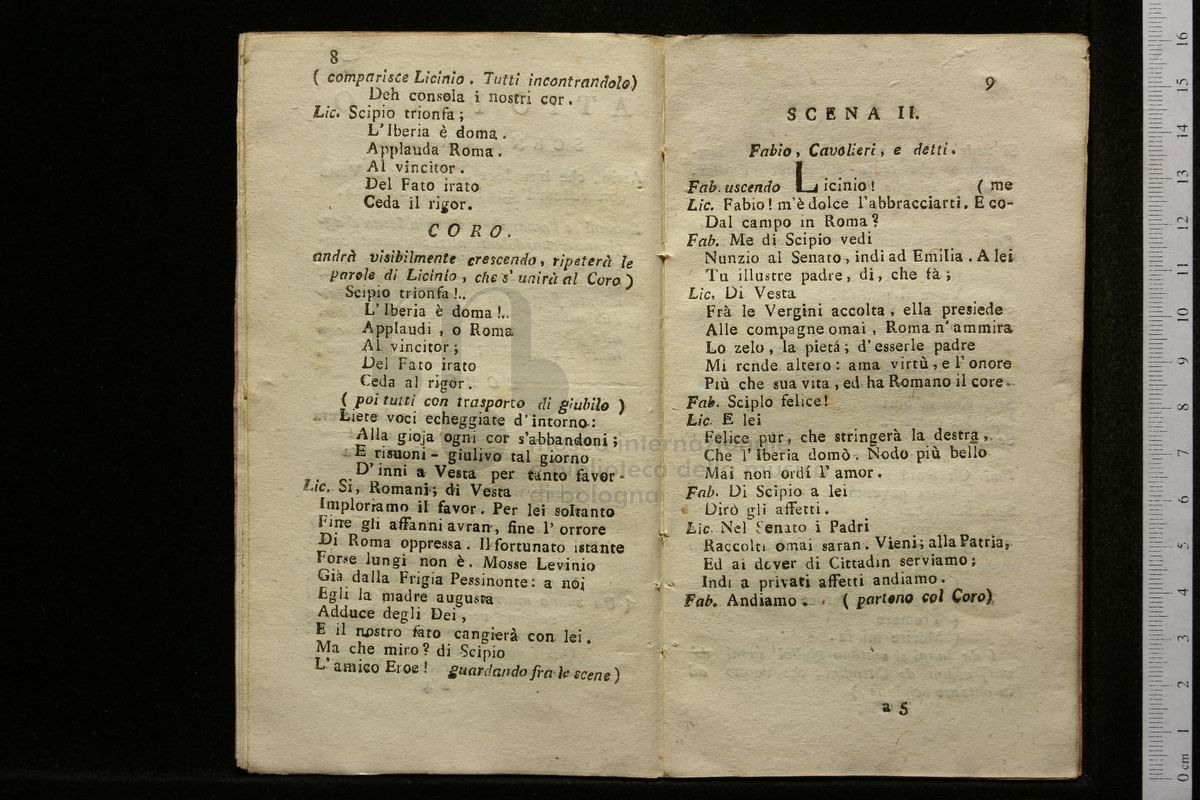 8
( comparisce Licinio . Tutti incontrandolo)
Deh consola i nostri cor .
Lic. Scipio trionfa ;
L'Iberia è doma .
Applauda Roma .
Al vincitor .
Del Fato irato
Ceda il rigor .
CORO .
andrà visibilmente crescendo , ripeterà le
parole di Licinio , che s' unirà al Coro )
Scipio trionfa !..
L' Iberia è doma !..
Applaudi , o Roma
Al vincitor ;
Del Fato irato
Ceda al rigor .
( poi tutti con trasporto di giubilo )
Liete voci echeggiate d' intorno :
Alla gioja ogni cor s'abbandoni ;
E risuoni - giulivo tal giorno
D' inni a Vesta per tanto favor -
Lic. Si, Romani ; di Vesta
Imploriamo il favor . Per lei soltanto
Fine gli affanni avran , fine l' orrore
Di Roma oppressa . Il fortunato istante
Forse lungi non è . Mosse Levinio
Già dalla Frigia Pessinonte : a noi
Egli la madre augusta
Adduce degli Dei ,
E il nostro fato cangierà con lei .
Ma che miro ? di Scipio
L' amico Eroe ! guardando fra le scene )
9
SCENA II.
Fabio , Cavolieri , e detti .
Fab. uscendo Licinio ! ( me
Lic. Fabio ! m'è dolce l'abbracciarti . E co-
Dal campo in Roma ?
Fab. Me di Scipio vedi
Nunzio al Senato , indi ad Emilia . A lei
Tu illustre padre , di , che fà ;
Lic, Di Vesta
Frà le Vergini accolta , ella presiede
Alle compagne omai , Roma n' ammira
Lo zelo , la pietá ; d' esserle padre
Mi rende altero : ama virtù , e l' onore
Più che sua vita , ed ha Romano il core .
Fab. Scipio felice !
Lic. E lei
Felice pur , che stringerà la destra ,
Che l' Iberia domò . Nodo più bello
Mai non ordí l' amor .
Fab. Di Scipio a lei
Dirò gli affetti .
Lic. Nel Senato i Padri
Raccolti omai saran . Vieni ; alla Patria ,
Ed ai dover di Cittadin serviamo ;
Indi a privati affetti andiamo .
Fab. Andiamo . ( partono col Coro)
a 5